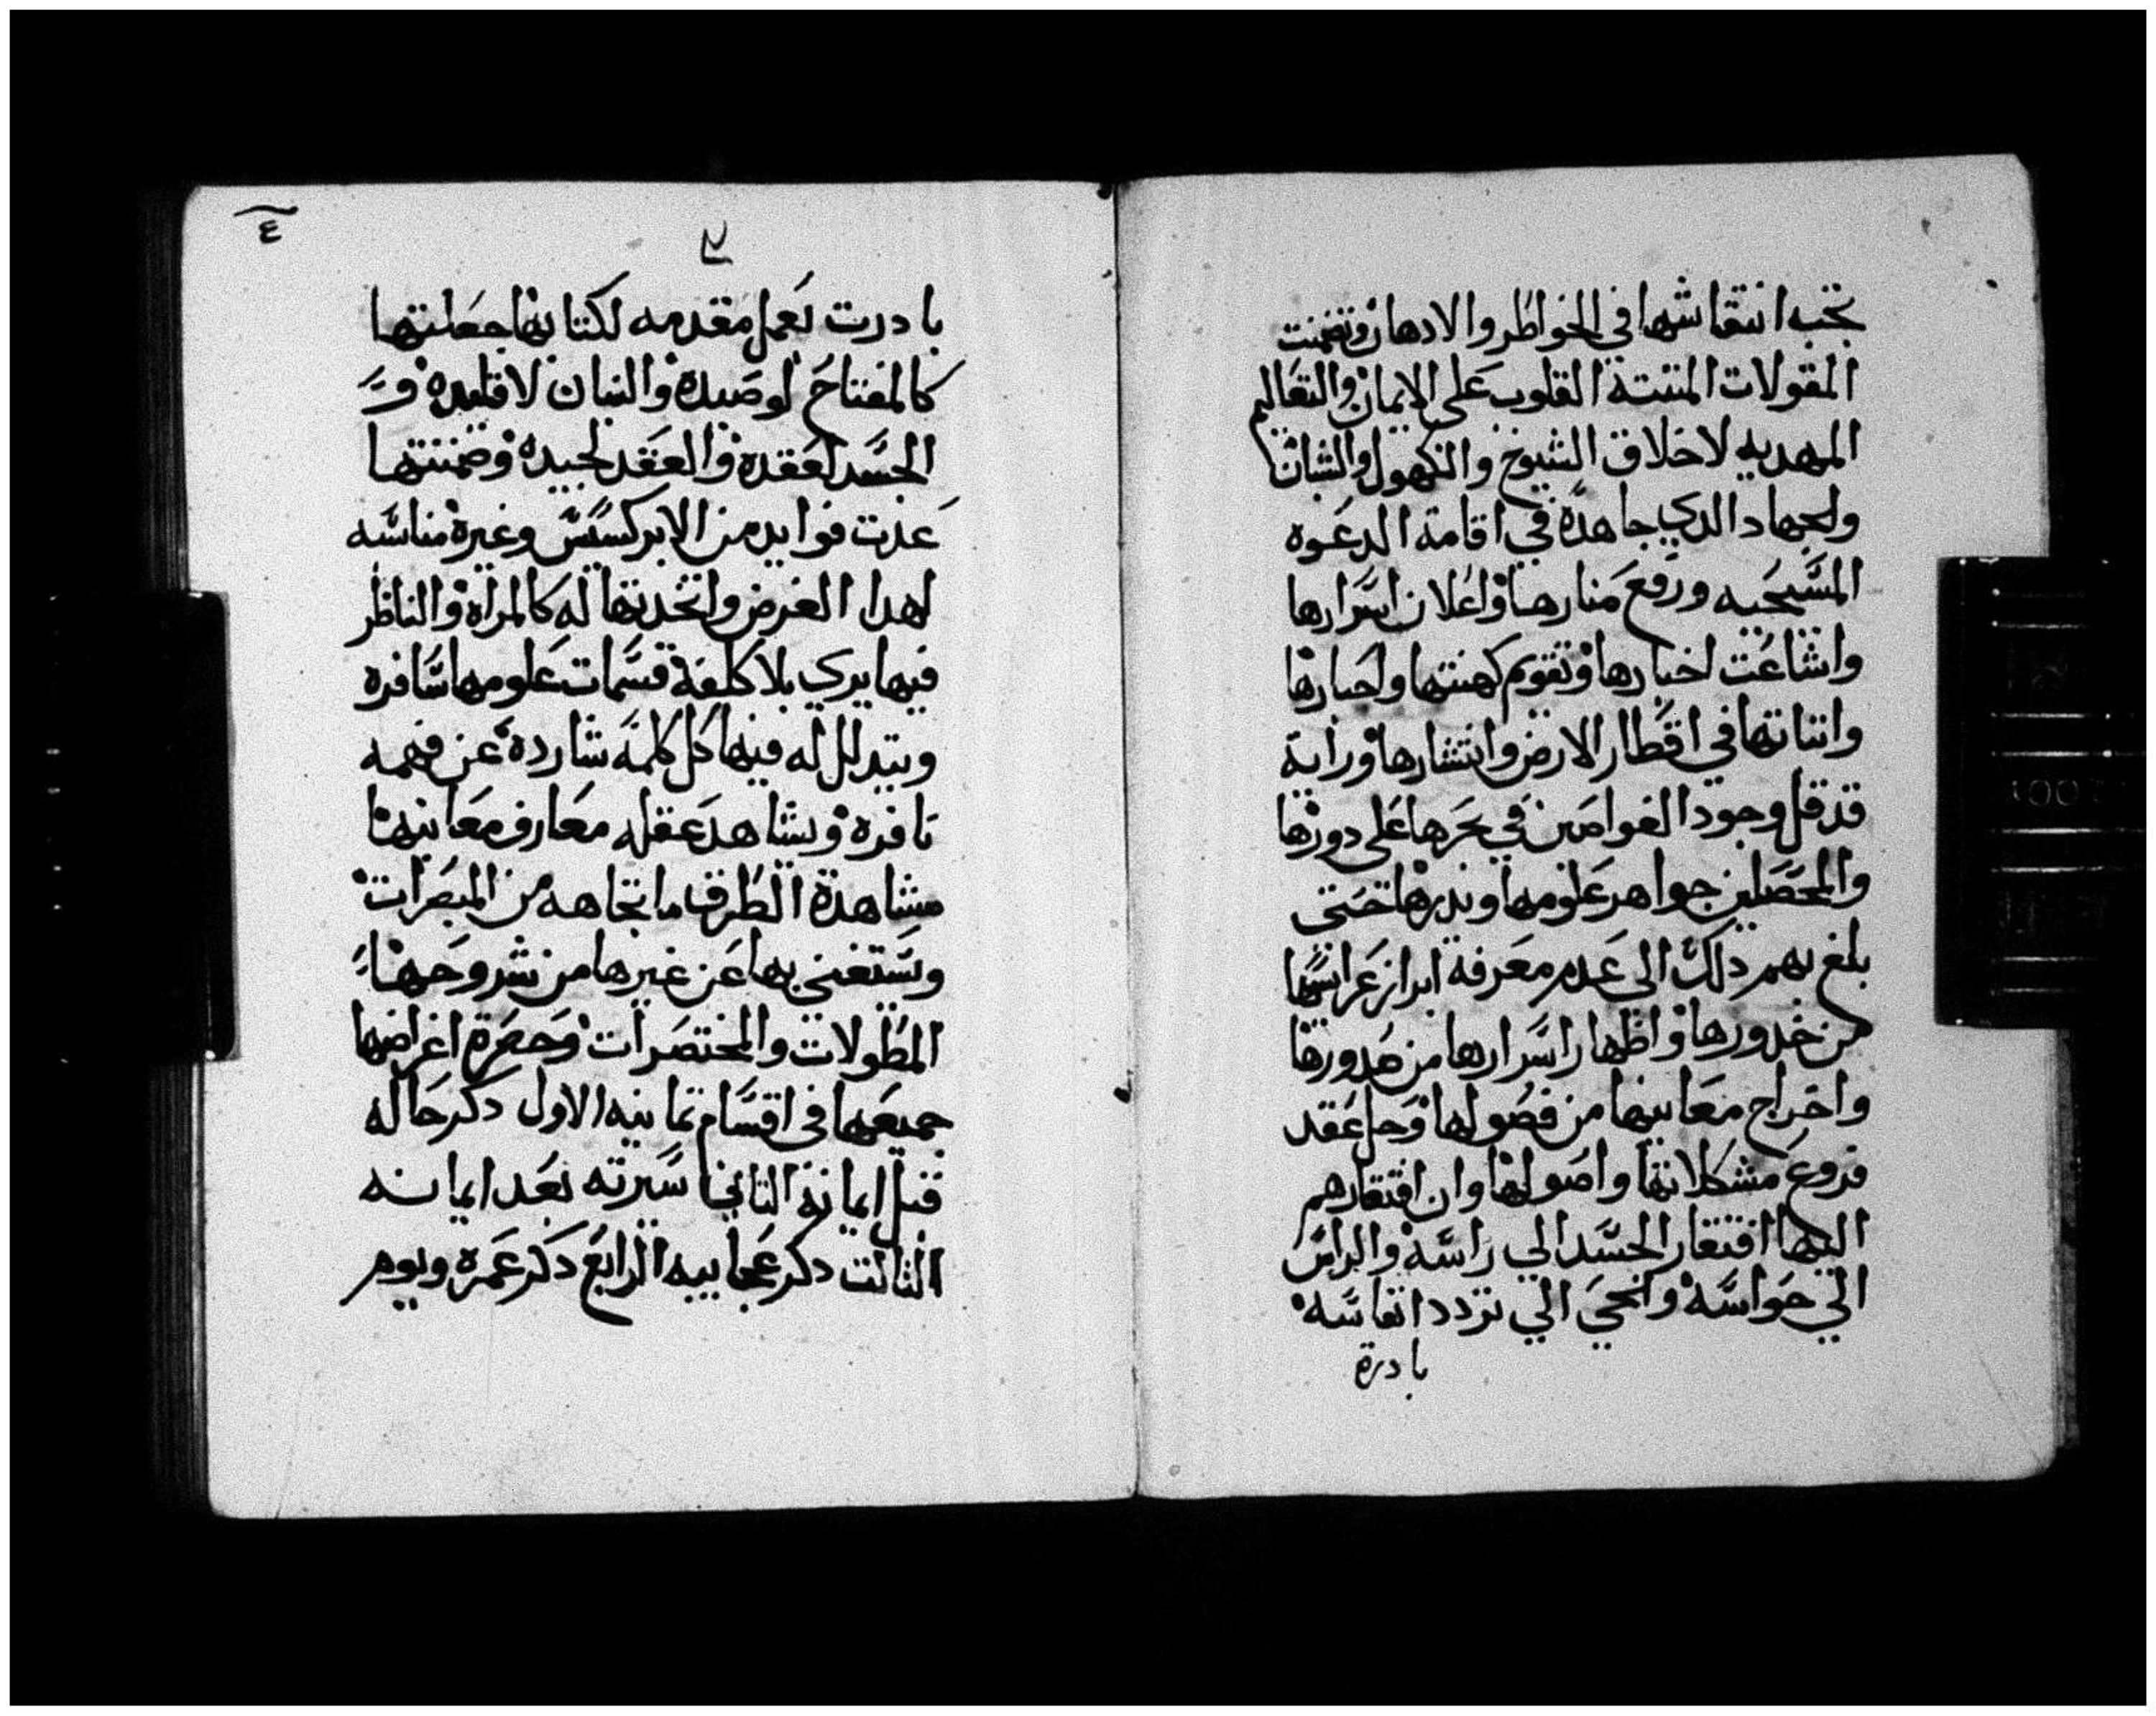 تجب انتقاشها في الخواطر والادهان وتضمنت
المقولات المتبتة القلوب على الايمان والتعاليم
المهديه لاخلاق الشيوخ والكهول والشبان
والجهاد الدي جاهده في اقامة الدعوه
المسيحيه ورفع منارها واعلان اسرارها
واشاعت اخبارها وتقويم كهنتها واحبارها
واتباتها في اقطار الارض وانتشارها ورايه
قد قل وجود الغواصين في بحرها على دورها
والمحصلين جواهر علومها وبدرها حتى
بلغ بهم دلك الي عدم معرفة ابراز عرايسها
من خدورها واظهار اسرارها من صدورها
واخراج معانيها من فصولها وحل عقد
فروع مشكلاتها واصولها وان افتقارهم
اليها افتقار الجسد الي راسه والراس
الي حواسه والحي الي تردد انفاسه
بادرة
٤
بادرت بعمل مقدمه لكتابها جعلتها
كالمفتاح لوصيده والبنان لاقليده و
الجسد لعقده والعقد لجيده وضمنتها
عدت فوايد من الابركسيس وغيره مناسبه
لهدا الغرض واتخدتها له كالمراه والناظر
فيها يري بلا كلفة قسمات علومها سافره
ويتدلل له فيها كل كلمه شارده عن فهمه
نافره ويشاهد عقله معارف معانيها
مشاهدة الطرف ما تجاهه من المبصرات
ويستغني بها عن غيرها من شروحها
المطولات والمختصرات وحصرة اغراضها
جميعها في اقسام تمانيه الاول دكر حاله
قبل ايمانه التاني سيرته بعد ايمانه
التالت دكر عجايبه الرابع دكر عمره ويوم